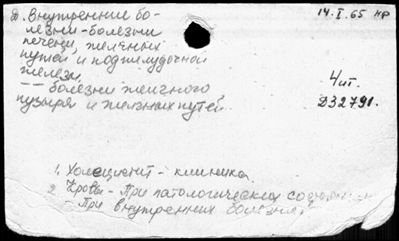 Д. Внутренние бо-
лезни-болезни
печени, желчных
путей и поджелудочной
железы.
— — болезни желчного
пузыря и желчных путей.
14.I.65 нр
Чит.
Д32791.
1. Холецистит - клиника.
2 Кровь - При патологических состояниях
- При внутренних болезнях